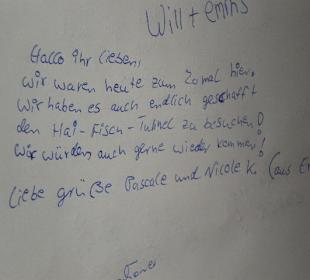 Hallo Ihr lieben,
wir waren heute zum 2o mal hier.
Wir haben es auch endlich geschafft
den Hai-Fisch-Tunnel zu besuchen!
Wir würden auch gerne wieder kommen!
liebe grüße Pascale und Nicole K. (aus